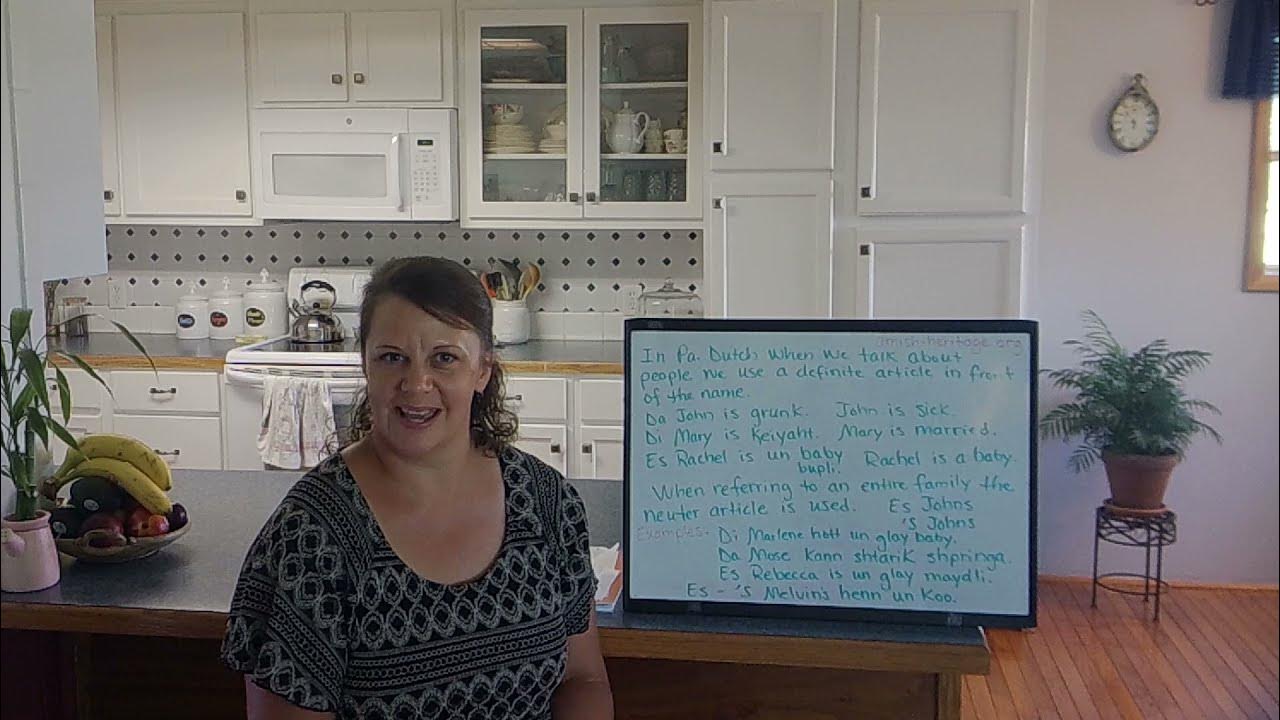 amish-heritage.org
In Pa. Dutch when we talk about
people we use a definite article in front
of the name.
Da John is grunk. John is sick.
Di Mary is keiyaht. Mary is married.
Es Rachel is un baby Rachel is a baby.
bupli.
When referring to an entire family the
neuter article is used. Es Johns
'S Johns
Examples- Di Marlene hott un glay baby.
Da Mose kann shtarik shpringa.
Es Rebecca is un glay maydli.
Es - 'S Melvins henn un Koo.